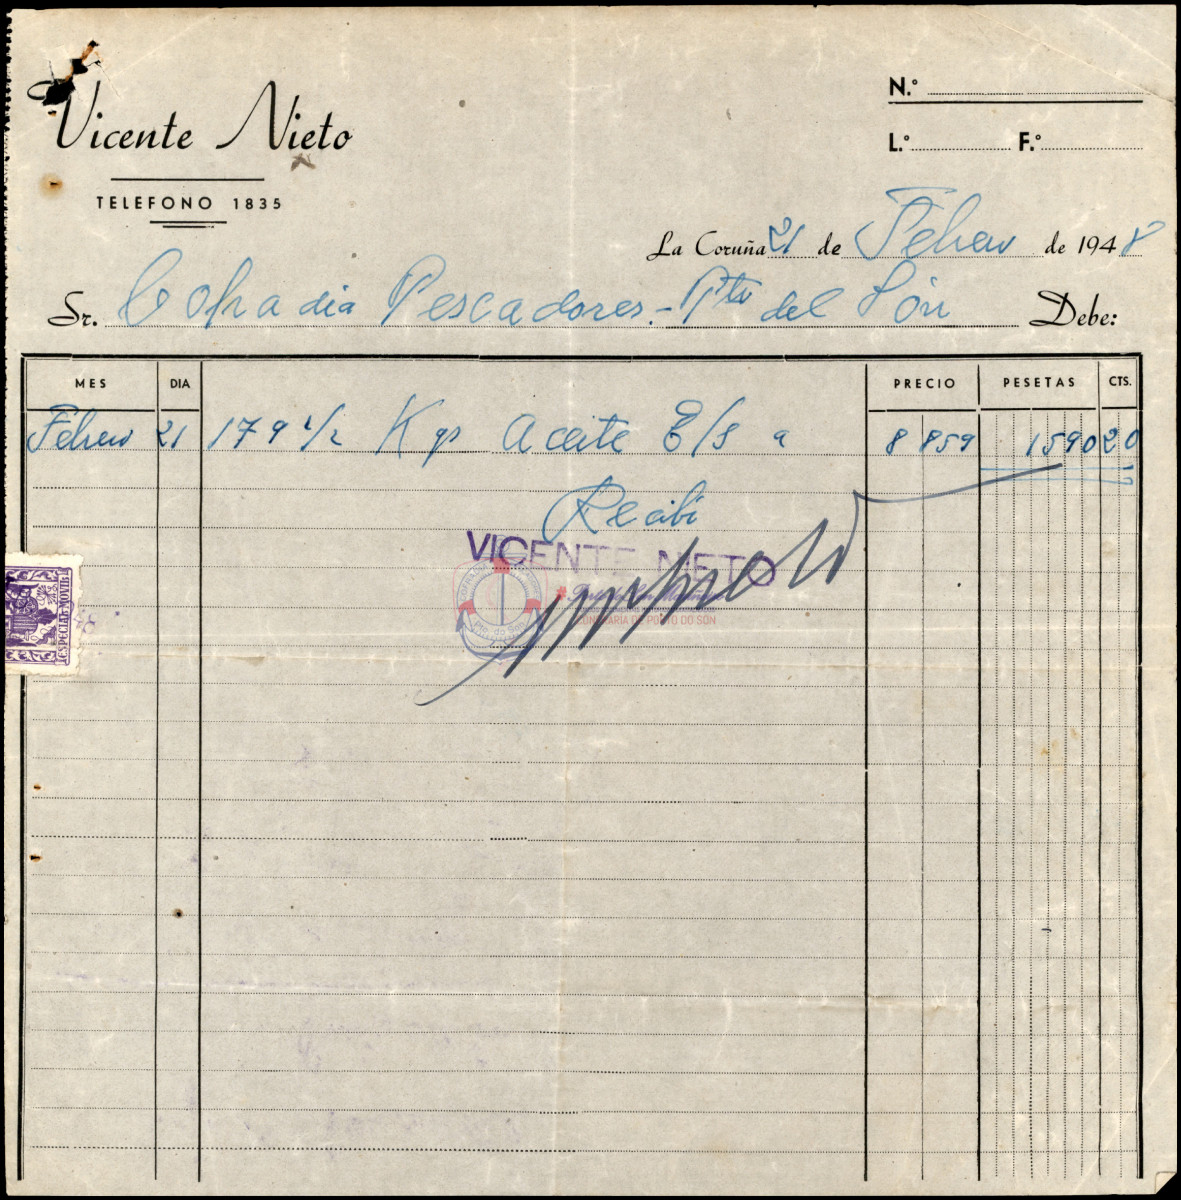 Vicente Nieto
TELEFONO 1835
N.º
L.º F.º
La Coruña 21 de Febrero de 1948
Sr. Cofradia Pescadores.- Pto del Són Debe:
MES DIA PRECIO PESETAS CTS.
Febrero 21 179 1/2 Kgs Aceite E/S a 8 859 1590 20
Recibi
VICENTE NIETO
Pto. do Son
CONFRARÍA DE PORTO DO SON
ESPECIAL MOVIL